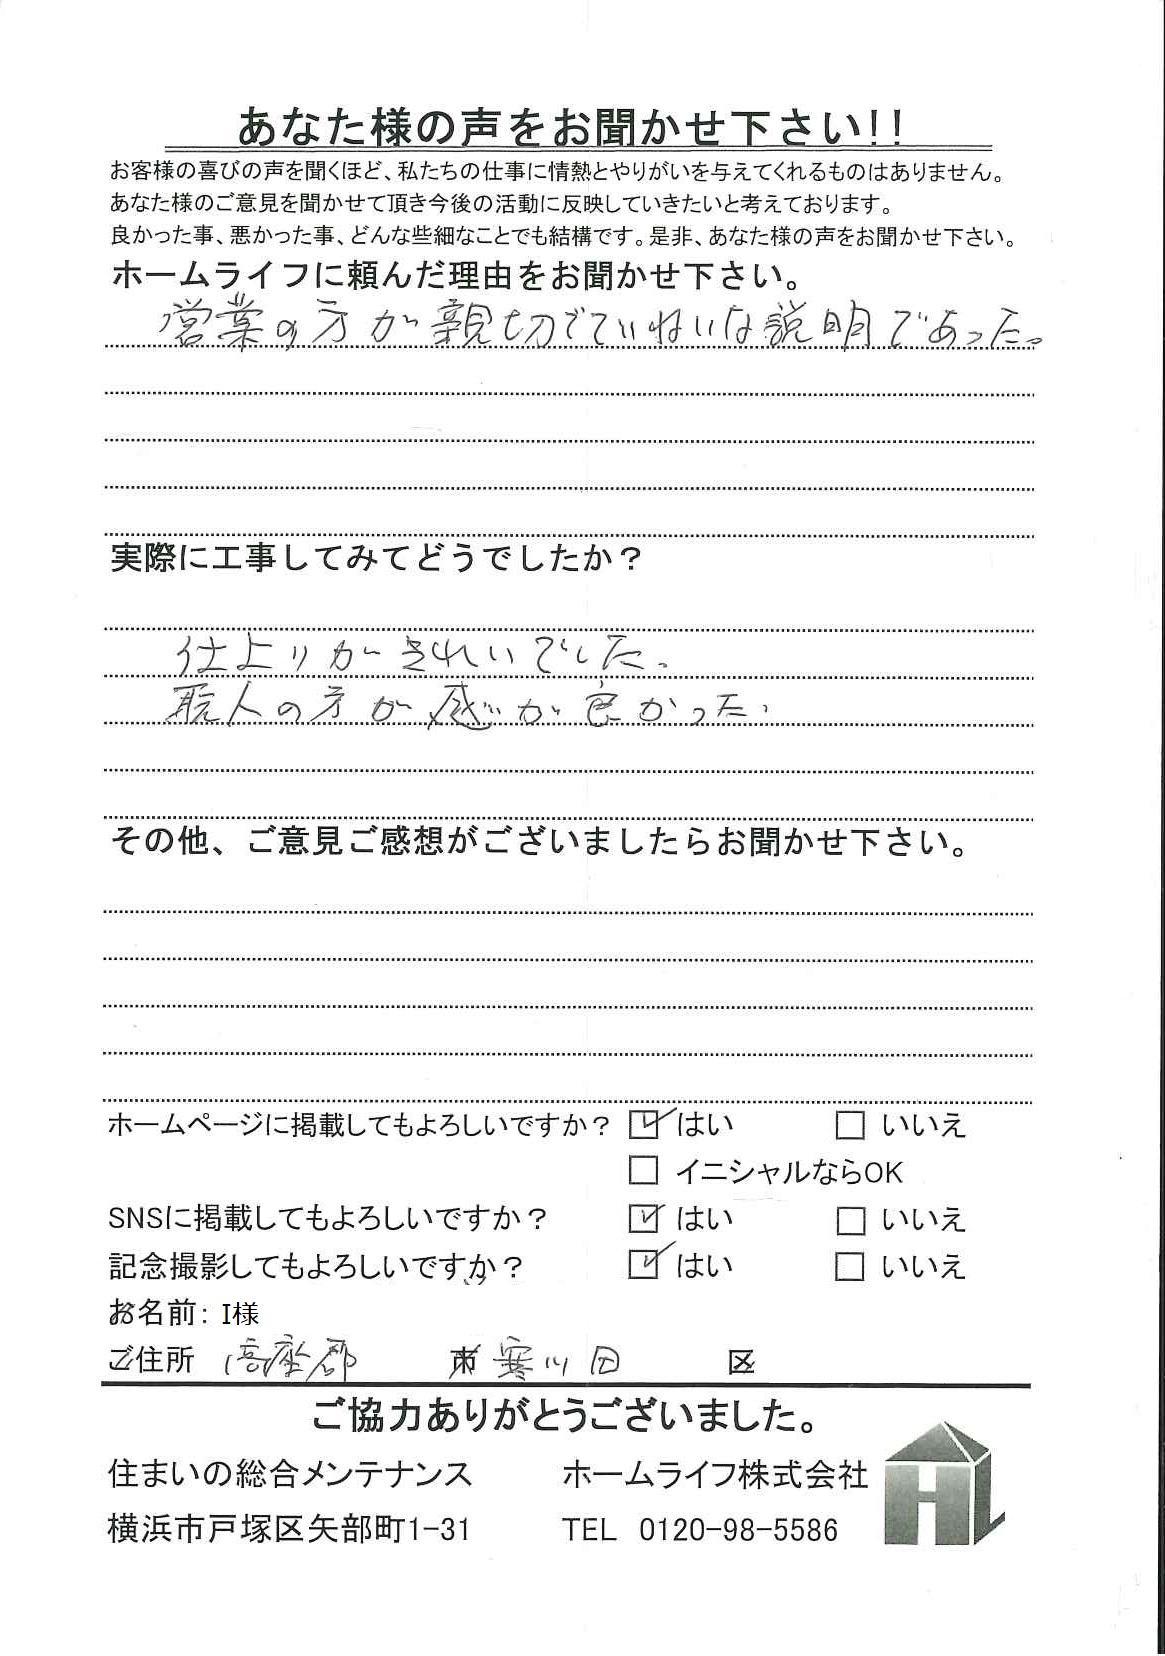 あなた様の声をお聞かせ下さい!!
お客様の喜びの声を聞くほど、私たちの仕事に情熱とやりがいを与えてくれるものはありません。
あなた様のご意見を聞かせて頂き今後の活動に反映していきたいと考えております。
良かった事、悪かった事、どんな些細なことでも結構です。是非、あなた様の声をお聞かせ下さい。
ホームライフに頼んだ理由をお聞かせ下さい。
営業の方が親切でていねいな説明であった。
実際に工事してみてどうでしたか？
仕上りがきれいでした。
職人の方が感じが良かった。
その他、ご意見ご感想がございましたらお聞かせ下さい。
ホームページに掲載してもよろしいですか？ ☑ はい □ いいえ
□ イニシャルならOK
SNSに掲載してもよろしいですか？ ☑ はい □ いいえ
記念撮影してもよろしいですか？ ☑ はい □ いいえ
お名前: I様
ご住所 高座郡 市 寒川町 区
ご協力ありがとうございました。
住まいの総合メンテナンス ホームライフ株式会社
横浜市戸塚区矢部町1-31 TEL 0120-98-5586